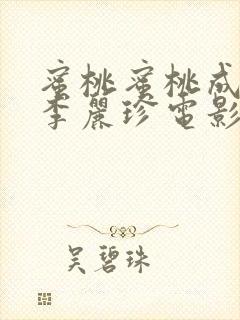 蜜桃蜜桃成
李麗珍電影
吴碧珠